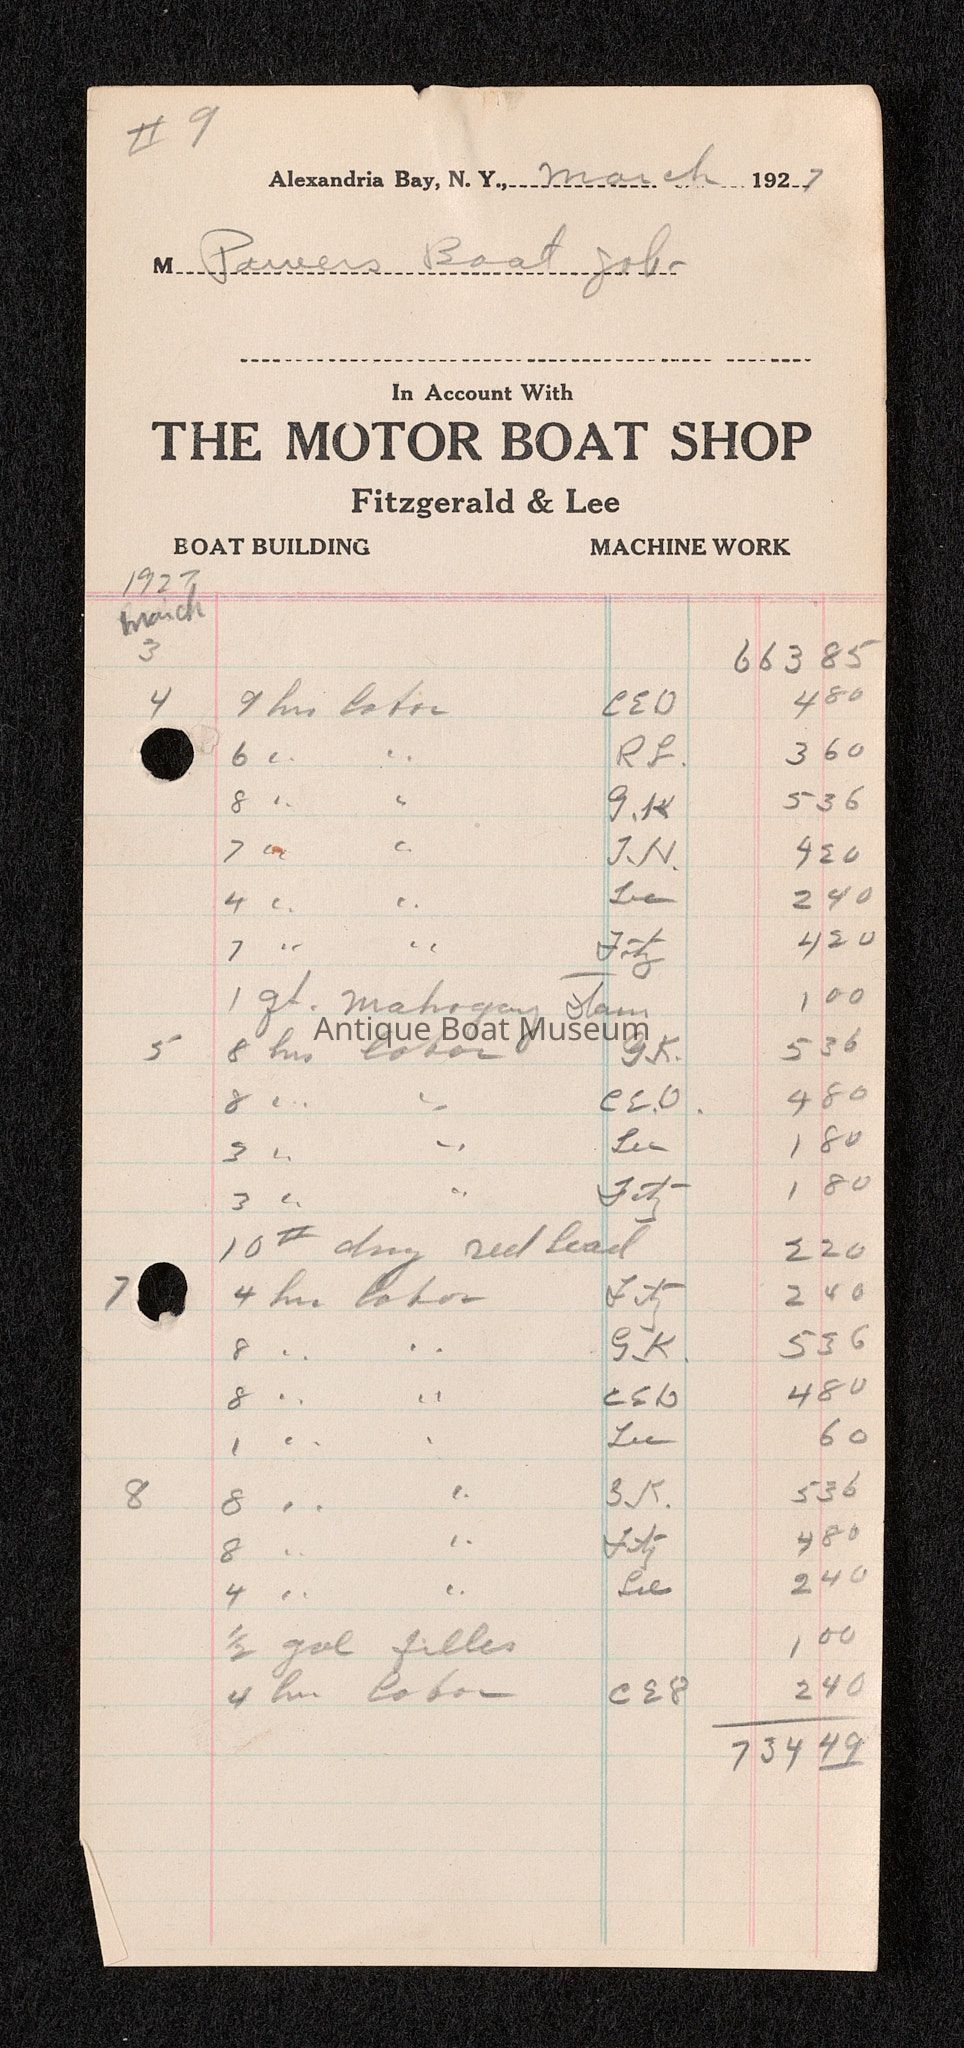 # 9
Alexandria Bay, N. Y., March 1927
M Powers Boat job-
In Account With
THE MOTOR BOAT SHOP
Fitzgerald & Lee
BOAT BUILDING MACHINE WORK
1927
March
3 663 85
4 9 hrs labor CEO 4 80
6 " " RL. 3 60
8 " " G.K 5 36
7 " " J.N. 4 20
4 " " Lee 2 40
7 " " Fitz 4 20
1 qt. Mahogany Stain 1 00
Antique Boat Museum
5 8 hrs labor G.K. 5 36
8 " " C.E.O. 4 80
3 " " Lee 1 80
3 " " Fitz 1 80
10# dry red lead 2 20
7 4 hrs labor Fitz 2 40
8 " " G.K. 5 36
8 " " CEO 4 80
1 " " Lee 60
8 8 " " G.K. 5 36
8 " " Fitz 4 80
4 " " Lee 2 40
1/2 gal filler 1 00
4 hrs labor CEO 2 40
734 49